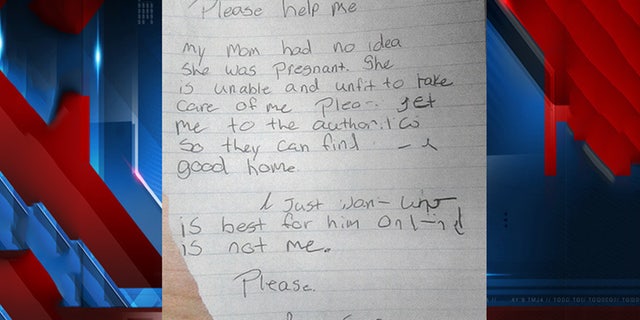 Please help me
my mom had no idea
she was pregnant. She
is unable and unfit to take
care of me Please get
me to the authorities
So they can find
good home.
I Just want
is best for him and
is not me.
Please.